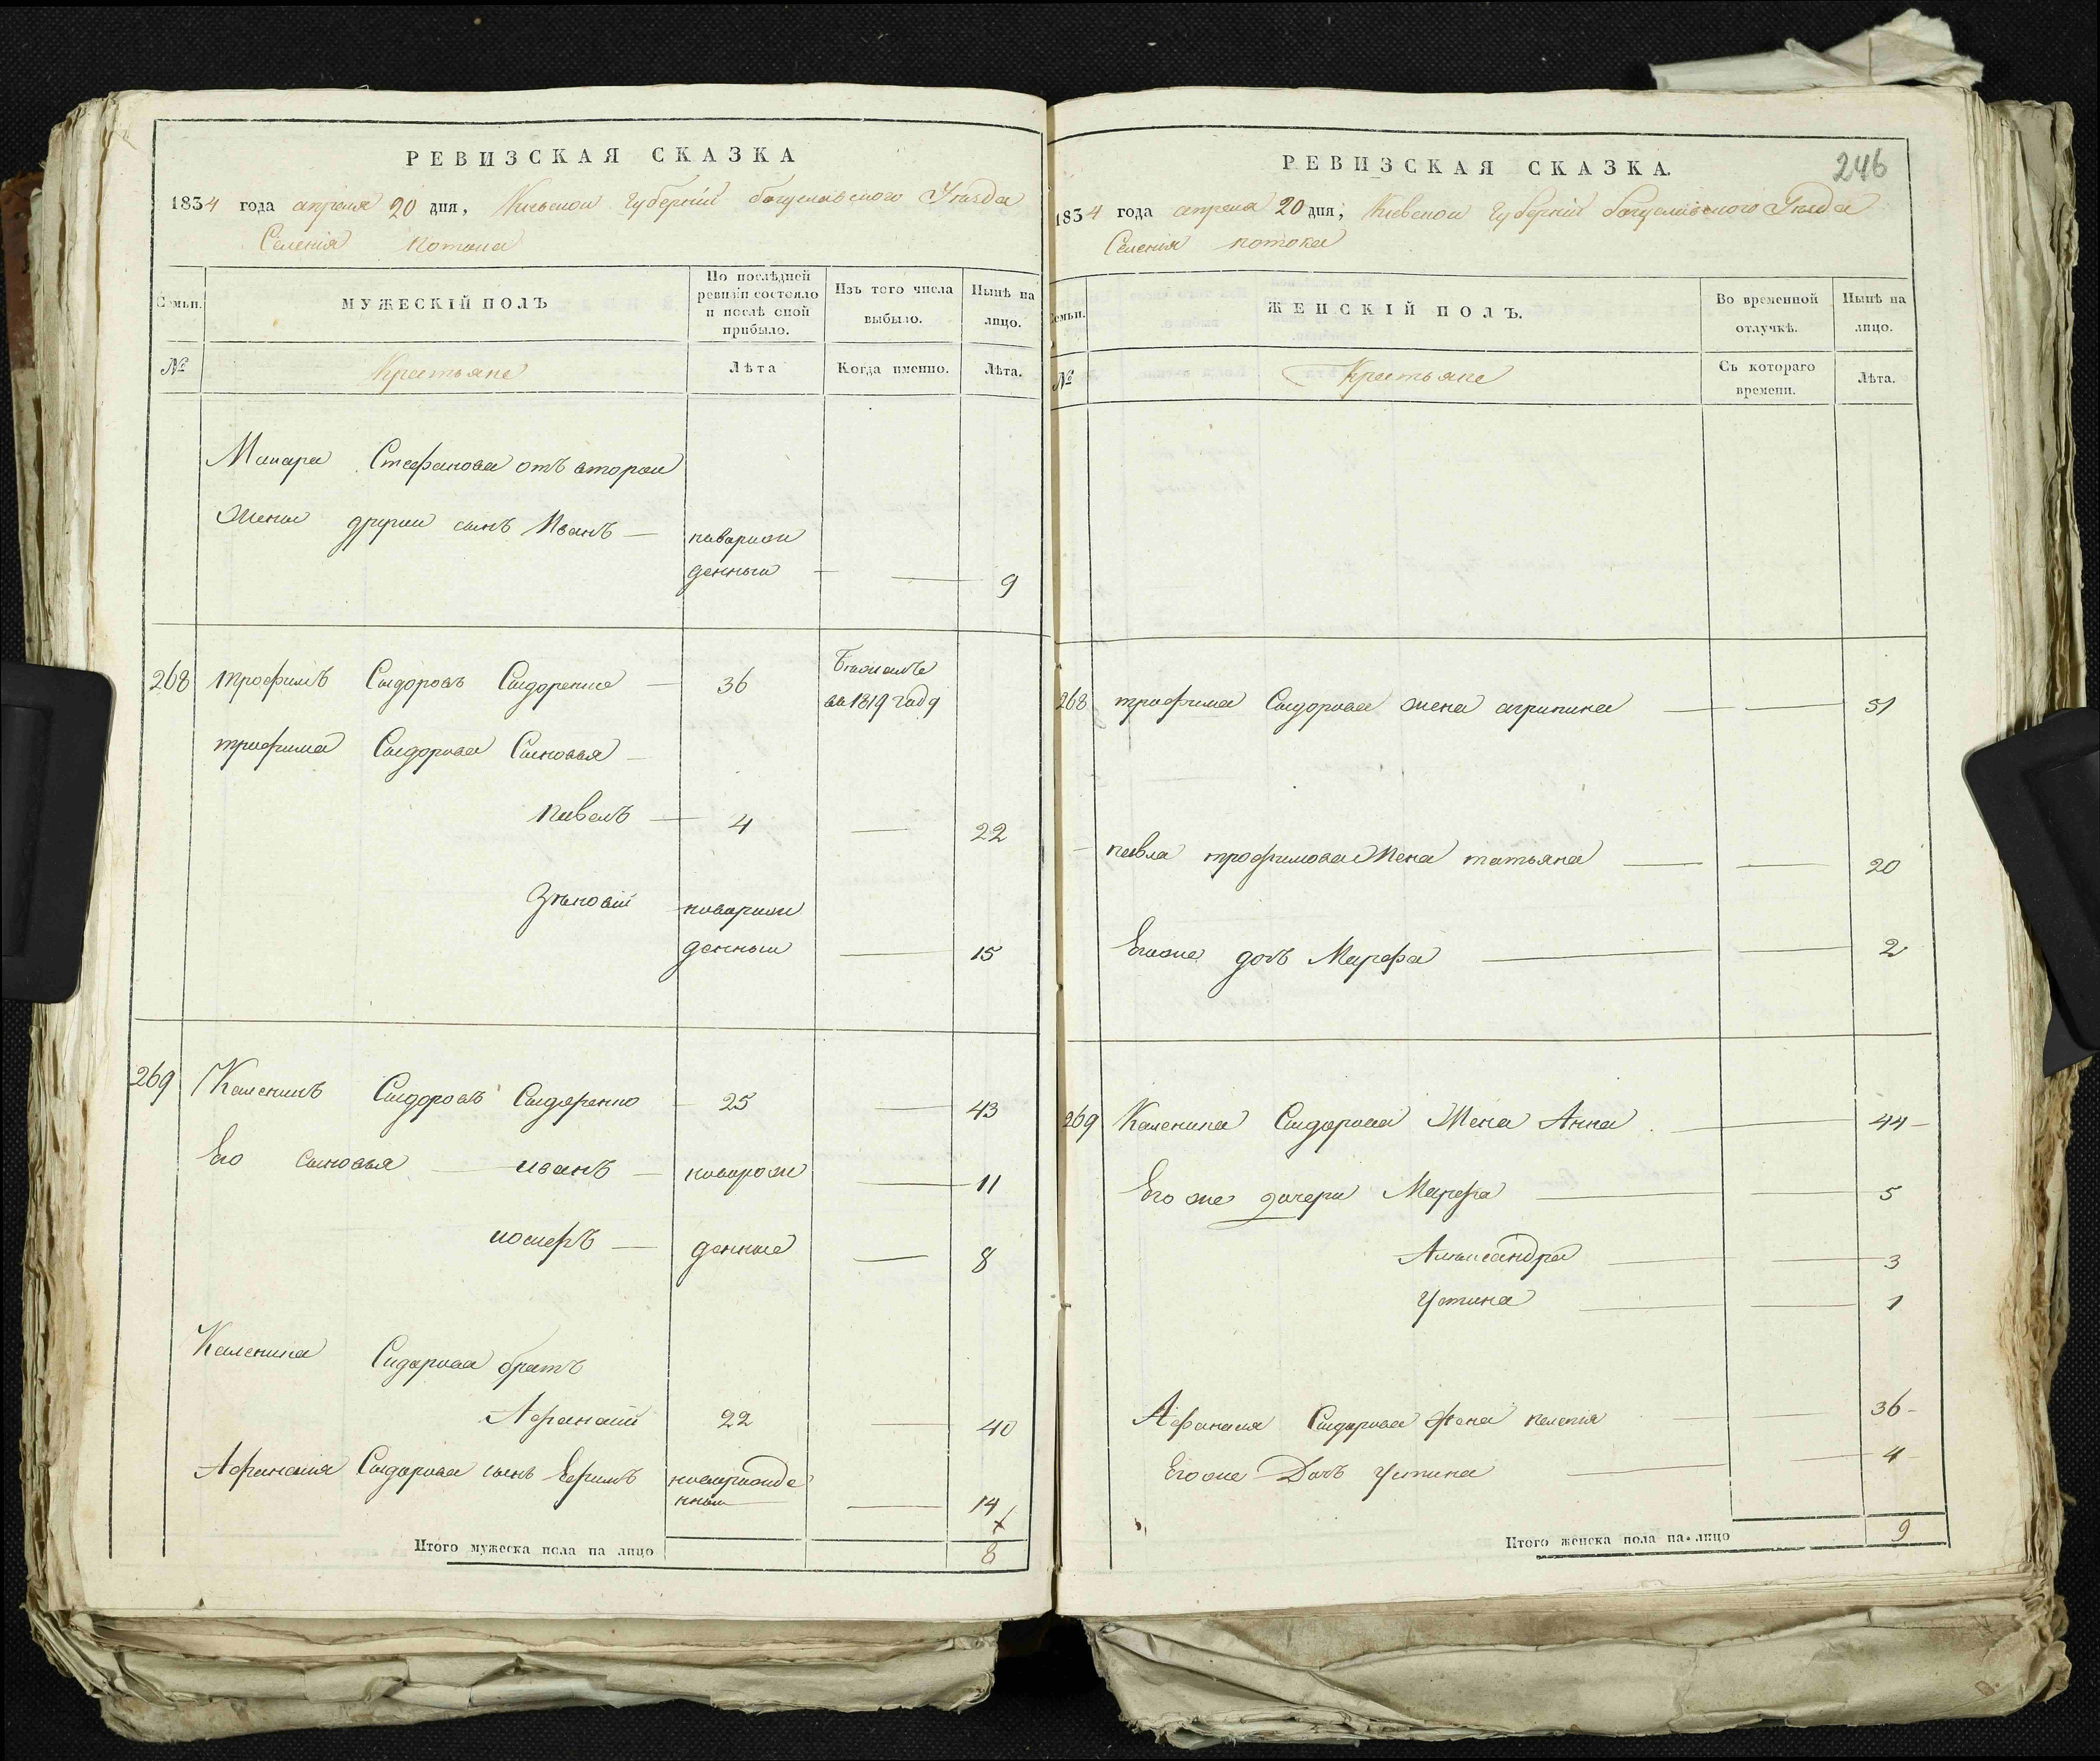 РЕВИЗСКАЯ СКАЗКА
1834 года апреля 20 дня, Киевской губерніи богуславского Уезда
Селенія потока
Семьи.
МУЖЕСКІЙ ПОЛЪ
По послѣдней ревизіи состояло и послѣ оной прибыло.
Изъ того числа выбыло.
Нынѣ на лицо.
№
Крестьяне
Лѣта
Когда именно.
Лѣта.
Макара Стефанова отъ второй
жены другий сынъ Иванъ — новорож
денный — — 9
268 трофимъ Сыдоровъ Сыдоренко — 36 бежалъ
въ 1819 году
трофима Сыдорова Сыновья —
павелъ — 4 — 22
Зѣновій новорож
денный — 15
269 Каленикъ Сыдоровъ Сыдоренко — 25 — 43
Его сыновья — иванъ — новорож — 11
иосифъ — денные — 8
Каленика Сидорова братъ
Афанасій 22 — 40
Афанасия Сыдорова сынъ Ефимъ новорожде
нный — 14
Итого мужеска пола на лицо 8
РЕВИЗСКАЯ СКАЗКА.
246
1834 года апреля 20 дня, Киевской губерніи богуславского Уезда
Селенія потока
Семьи.
ЖЕНСКІЙ ПОЛЪ.
Во временной отлучкѣ.
Нынѣ на лицо.
№
Крестьяне
Съ котораго времени.
Лѣта.
268 трофима Сыдорова жена агрипина — — 51
павла трофимова Жена татьяна — — 20
Егоже дочь Марфа — — 2
269 Каленика Сыдорова Жена Анна — 44
Его же дочери Марфа — — 5
Александра — — 3
Устина — — 1
Афанасия Сыдорова Жена — 36
Егоже Дочь Устина — — 4
Итого женска пола на лицо 9